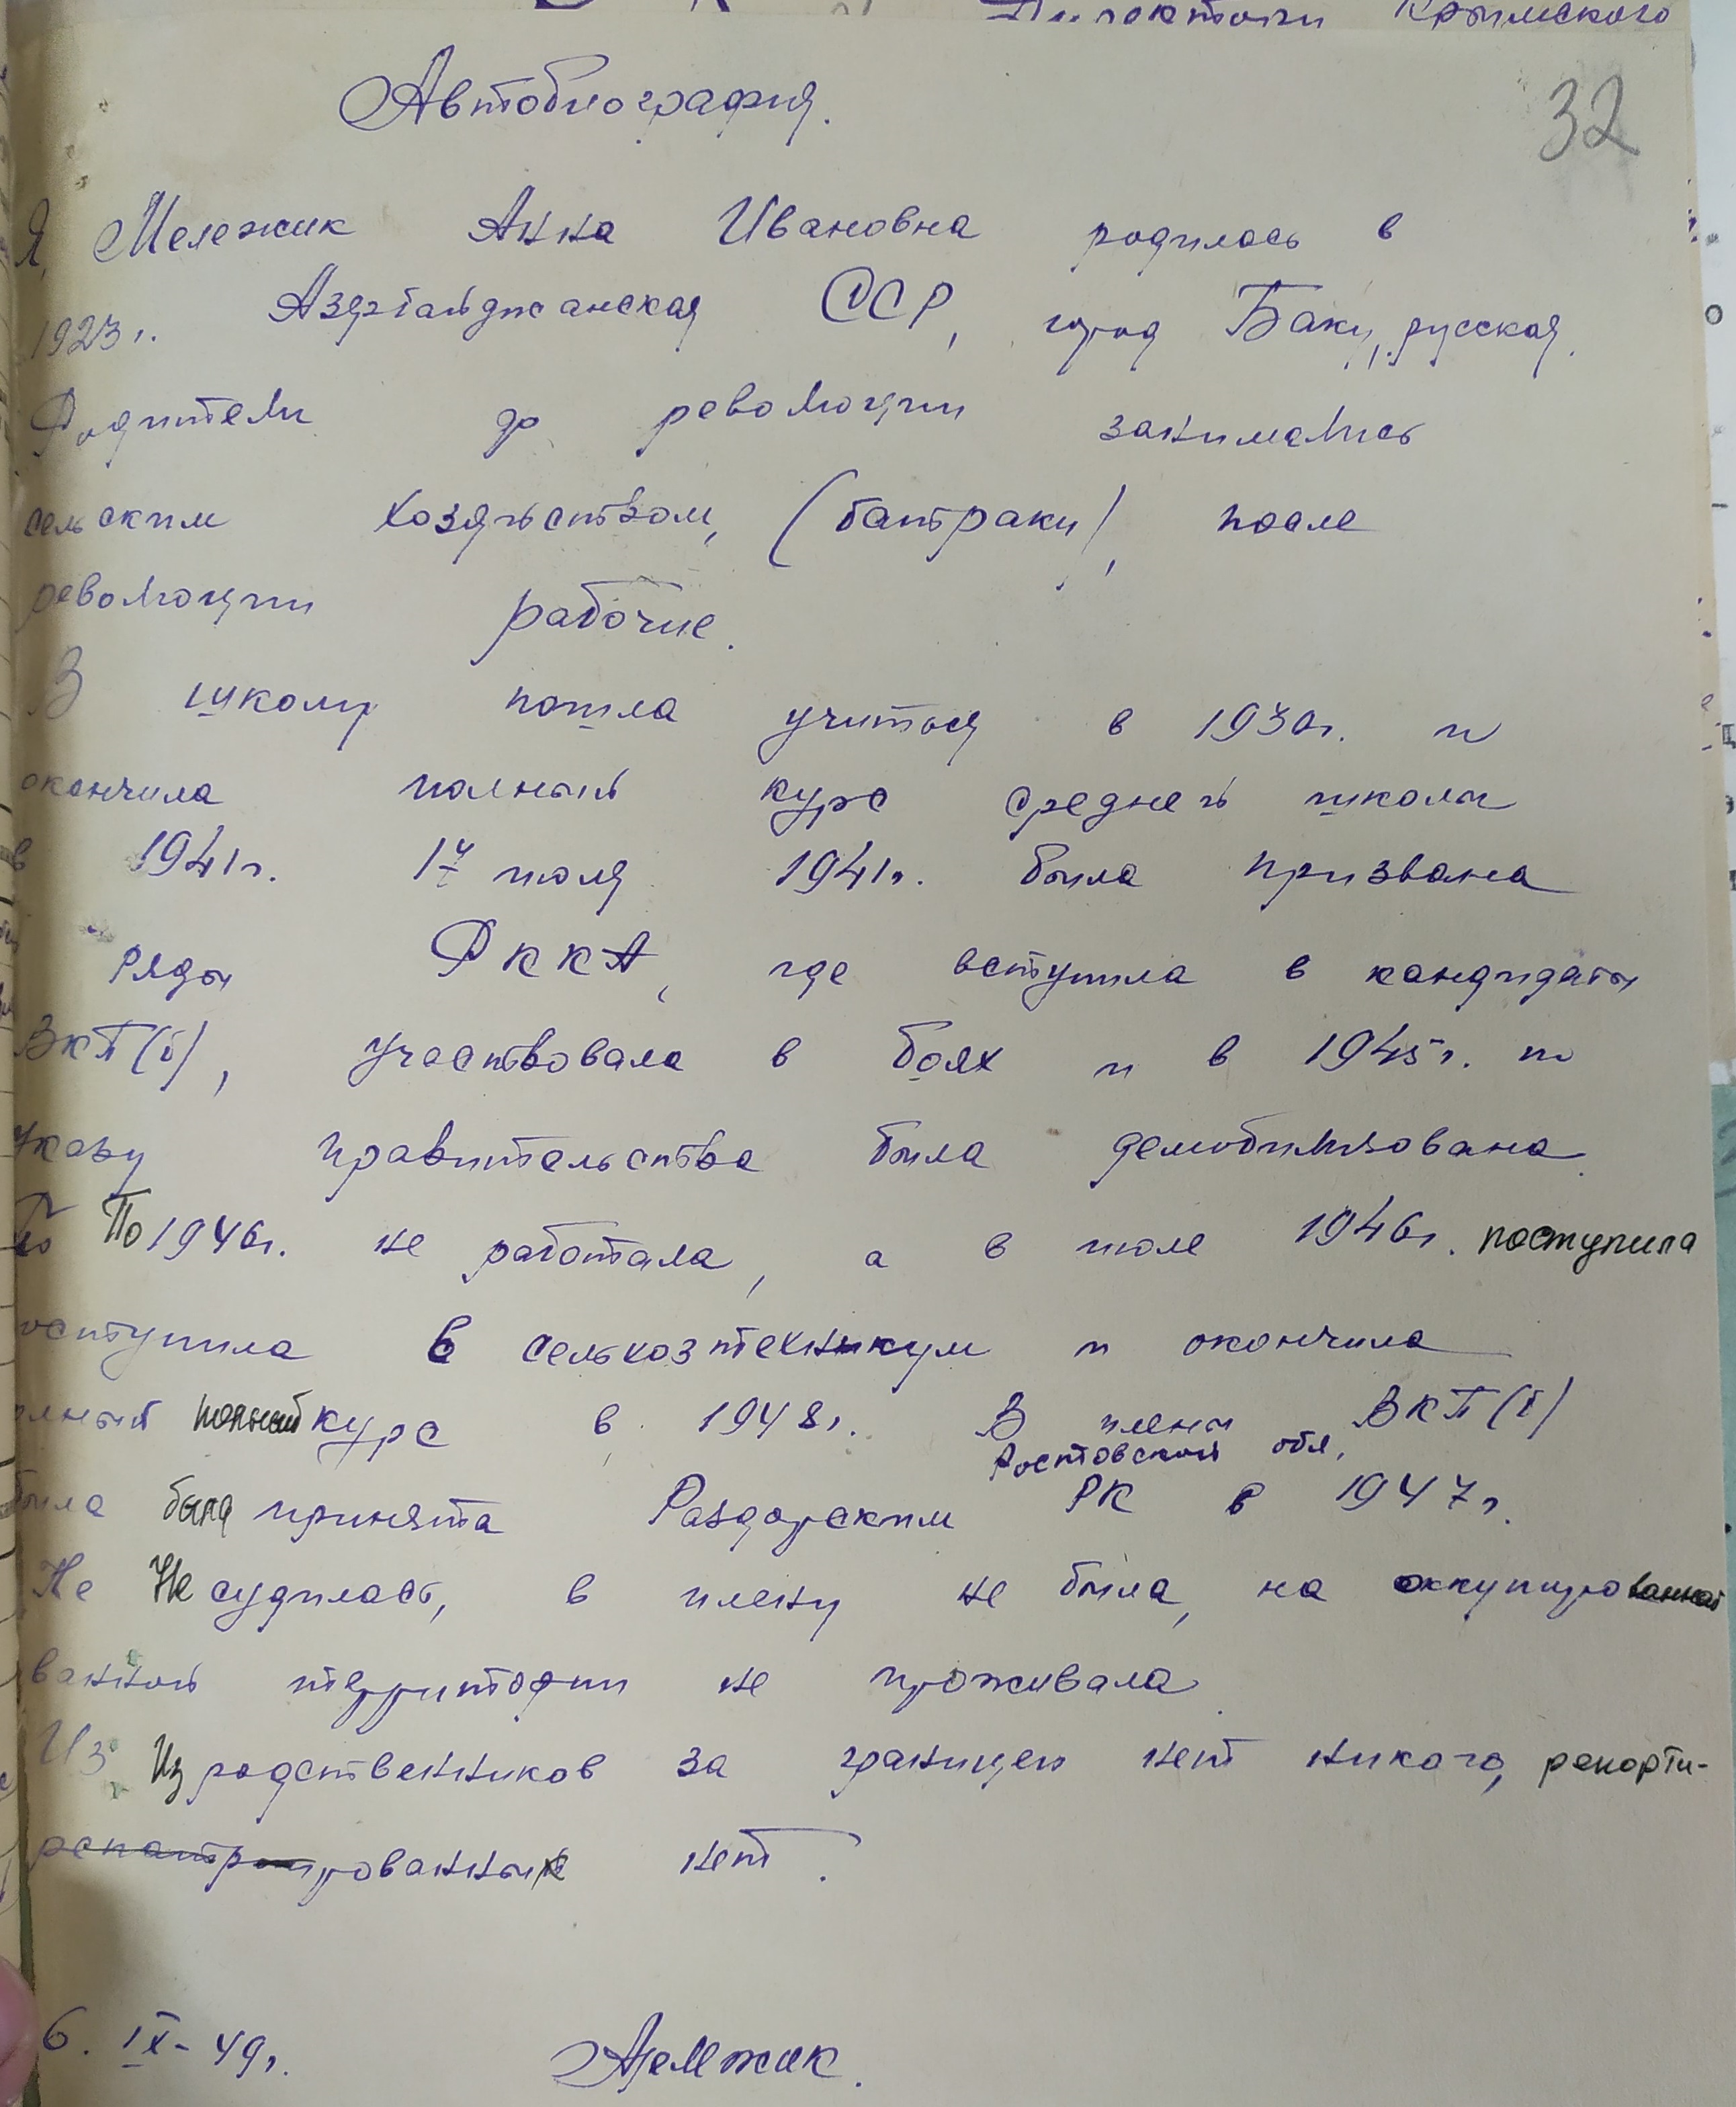 Крымского
Автобиография.
32
Я, Мележик Анна Ивановна родилась в
1923 г. Азербайджанская ССР, город Баку, русская.
Родители до революции занимались
сельским хозяйством, (батраки), после
революции рабочие.
В школу пошла учиться в 1930г. и
окончила полный курс средней школы
в 1941г. 17 июля 1941г. была призвана
ряды РККА, где вступила в кандидаты
ВКП(б), участвовала в боях и в 1945г. по
указу правительства была демобилизована.
По По 1946г. не работала, а в июле 1946г. поступила
поступила в сельхозтехникум и окончила
полный полный курс в 1948г. В члены ВКП(б)
Ростовской обл,
была была принята Раздорским РК в 1947г.
Не Не судилась, в плену не была, на оккупированной
ванной территории не проживала.
Из Из родственников за границей нет никого, репорти-
репатриированных нет.
6. IX-49г. Мележик.